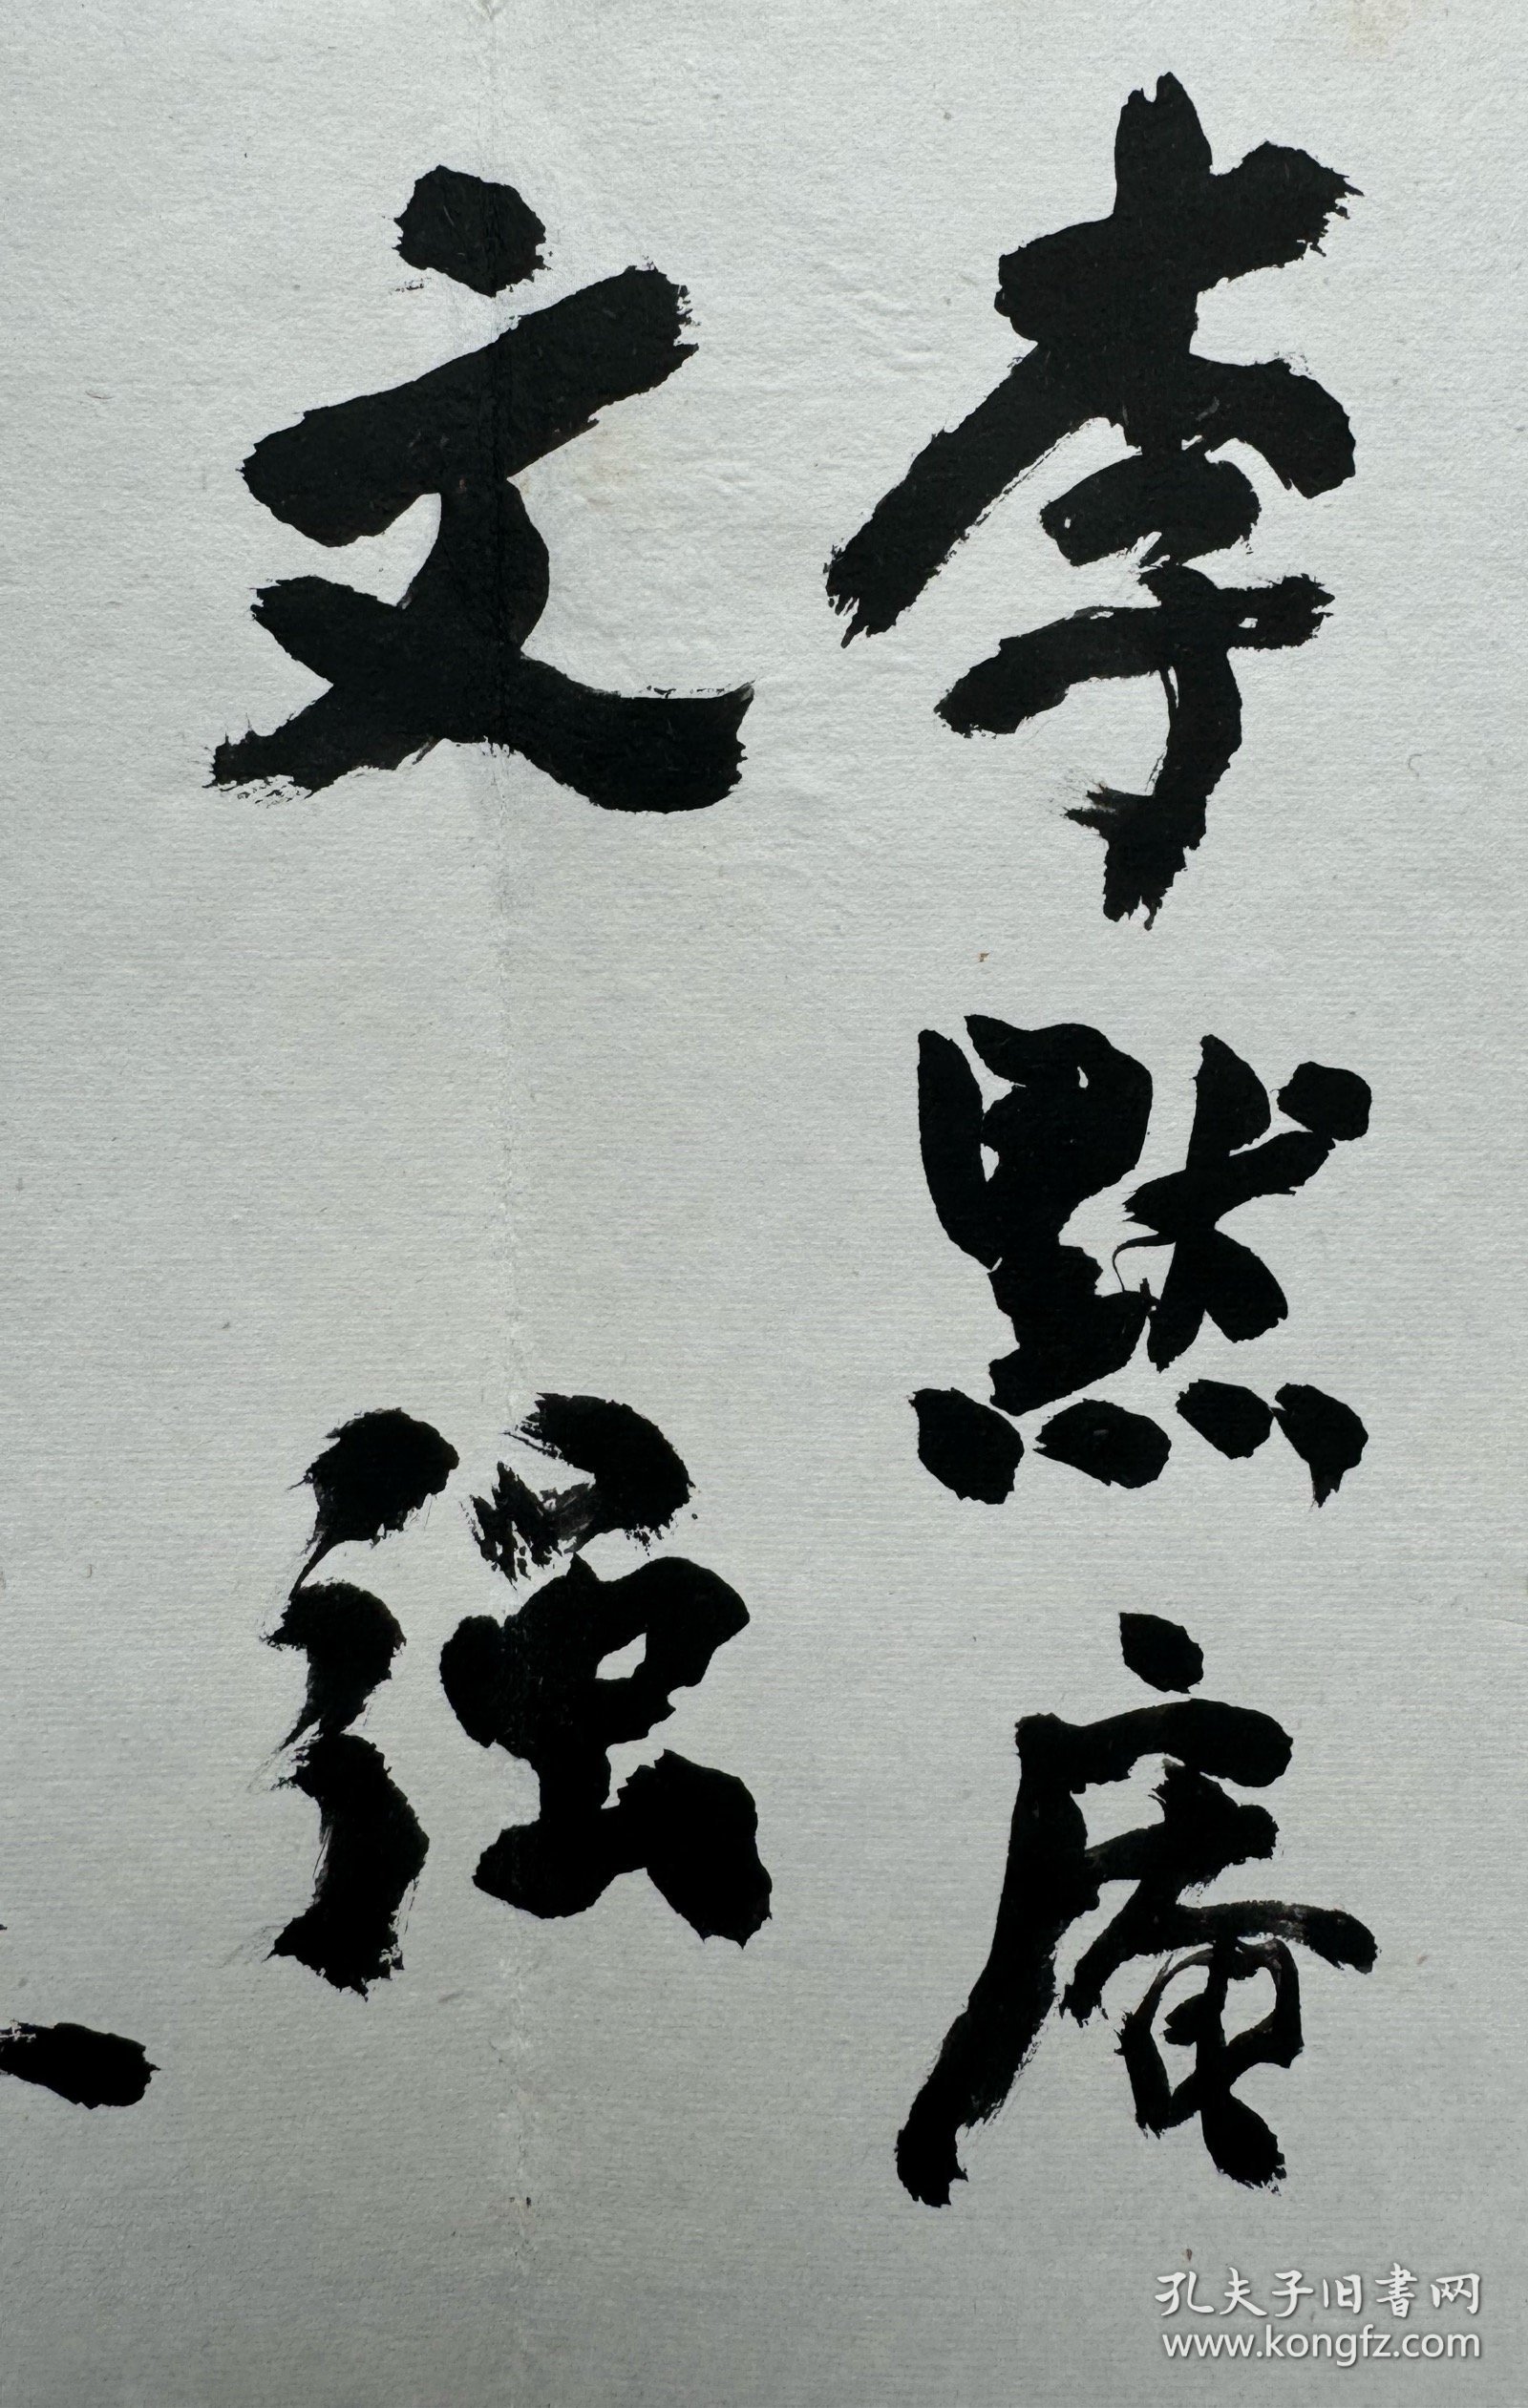 李默庵
文强
孔夫子旧書网
www.kongfz.com